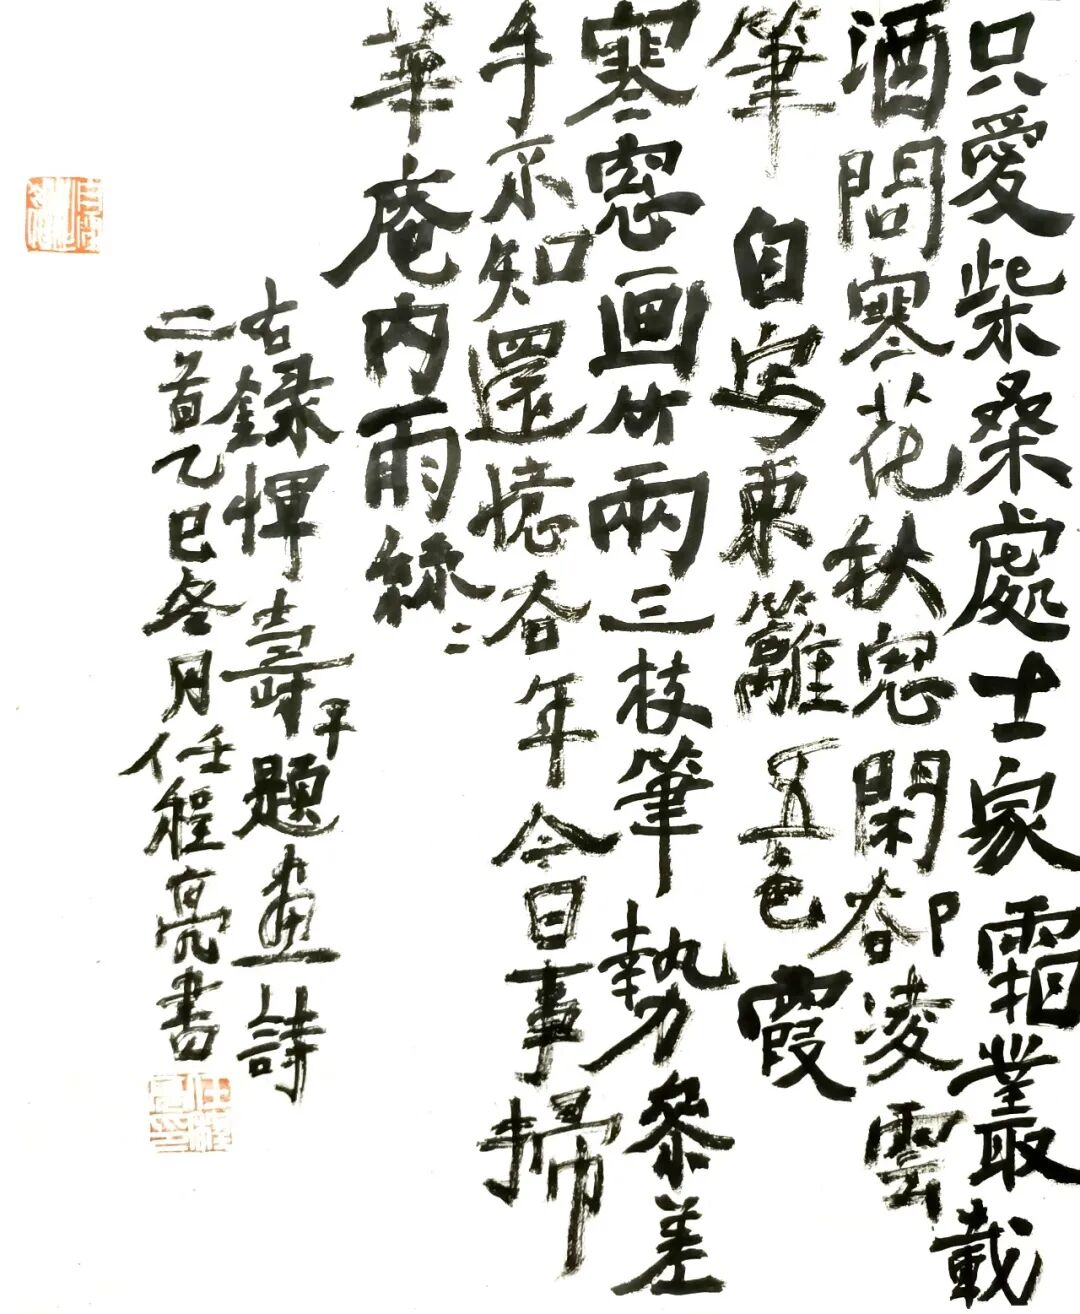 只愛柴桑處士家霜叢載
酒問寒花秋窓閑却凌雲
筆自寫東籬五色霞
寒窓画竹兩三枝筆勢參差
手不知還憶春年今日事掃
華庵内雨絲二
右錄惲壽平題畫詩
二首乙巳冬月任程亮書